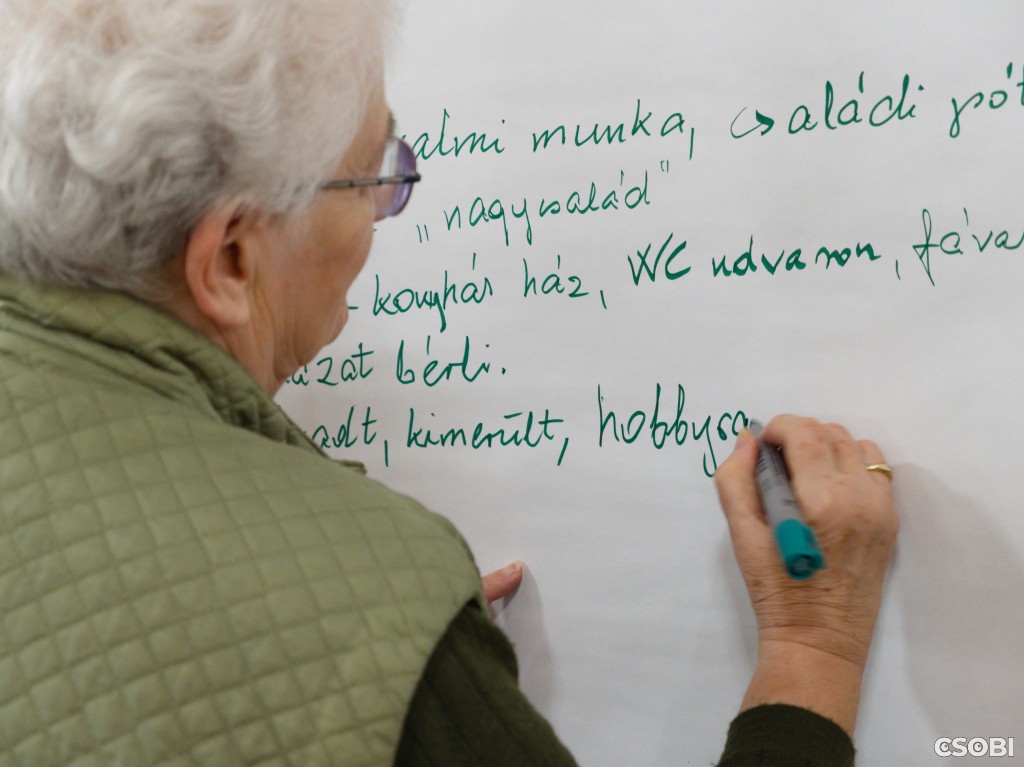 almi munka, családi pót
„nagycsalád"
- konyhás ház, WC udvaron, fáva
ázat bérli.
adt, kimerült, hobbysa
CSOBI